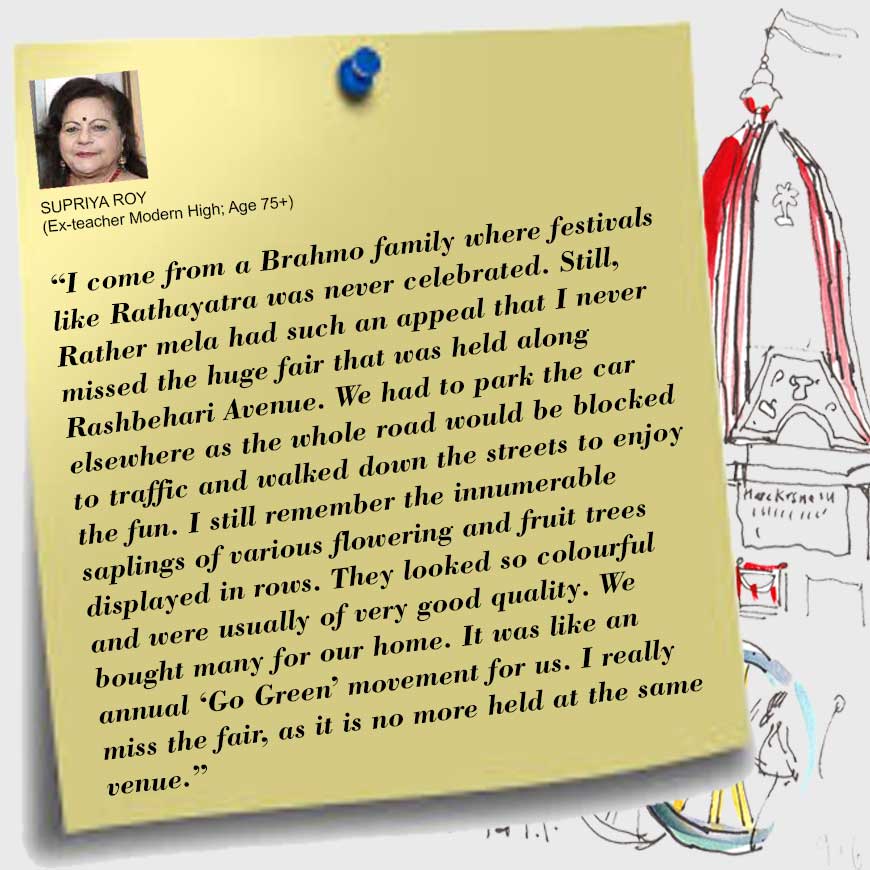 SUPRIYA ROY
(Ex-teacher Modern High; Age 75+)
“I come from a Brahmo family where festivals
like Rathayatra was never celebrated. Still,
Rather mela had such an appeal that I never
missed the huge fair that was held along
Rashbehari Avenue. We had to park the car
elsewhere as the whole road would be blocked
to traffic and walked down the streets to enjoy
the fun. I still remember the innumerable
saplings of various flowering and fruit trees
displayed in rows. They looked so colourful
and were usually of very good quality. We
bought many for our home. It was like an
annual ‘Go Green’ movement for us. I really
miss the fair, as it is no more held at the same
venue.”